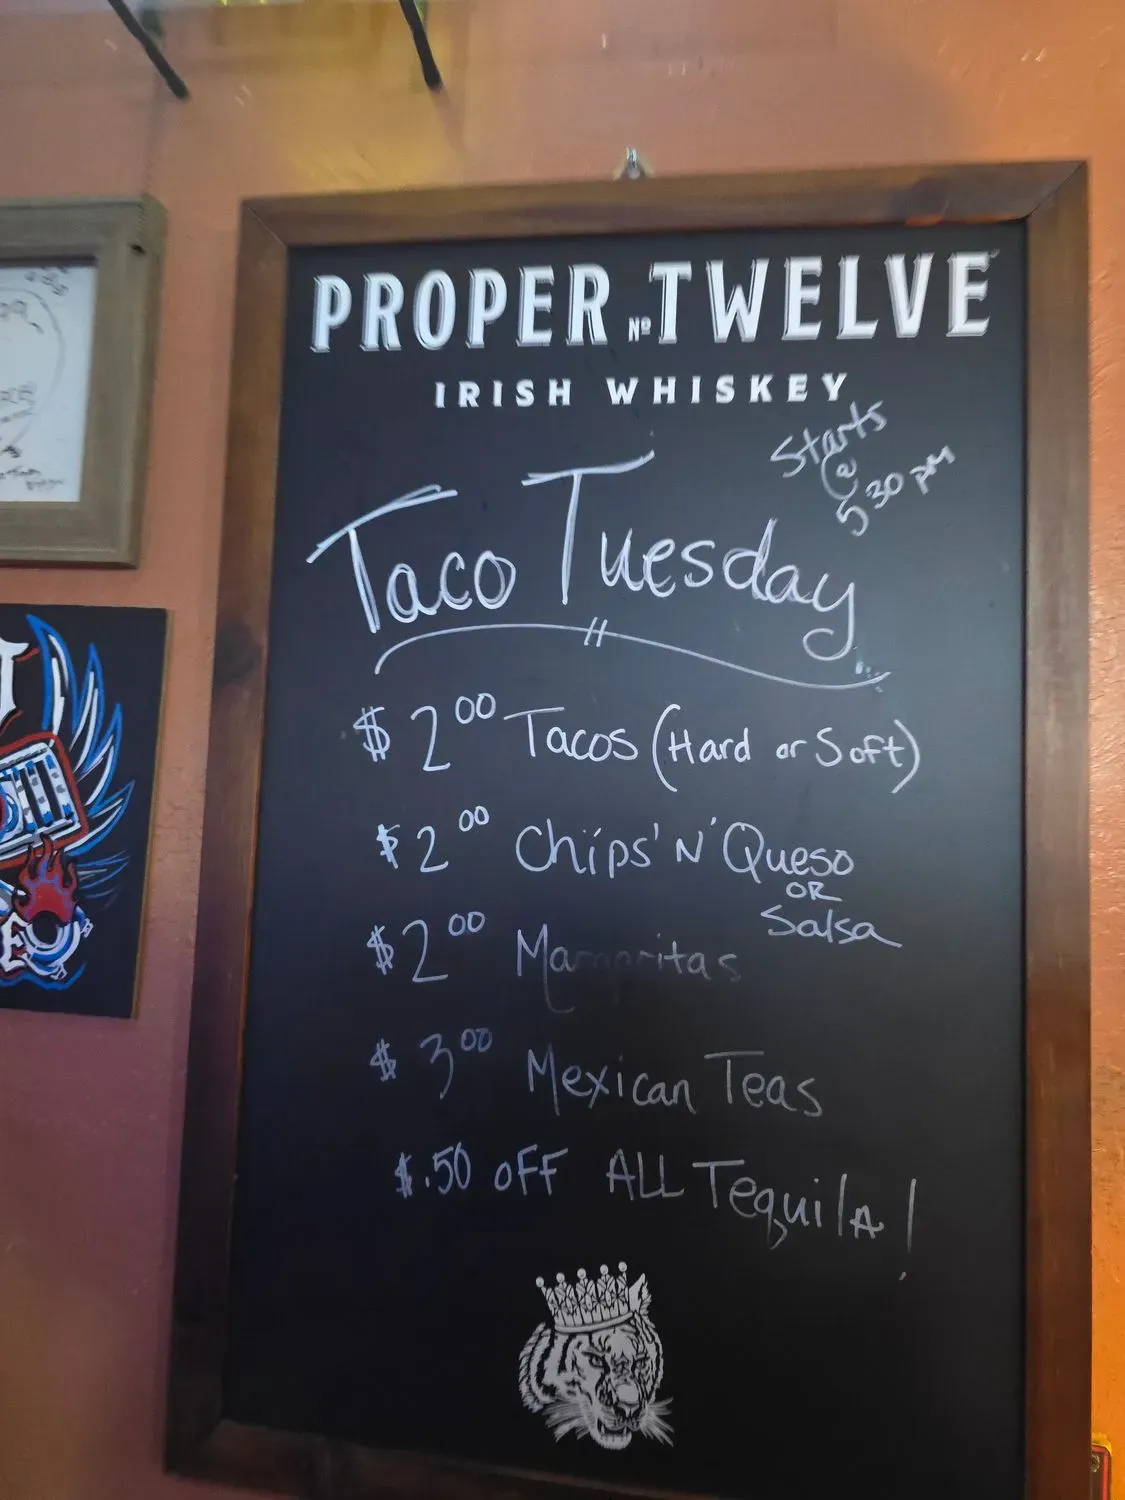 PROPER Nº TWELVE
IRISH WHISKEY
Starts
@
5 30 pm
Taco Tuesday
$2.00 Tacos (Hard or Soft)
$2.00 Chips 'N' Queso
OR
Salsa
$2.00 Margaritas
$3.00 Mexican Teas
$.50 OFF ALL TequilA!